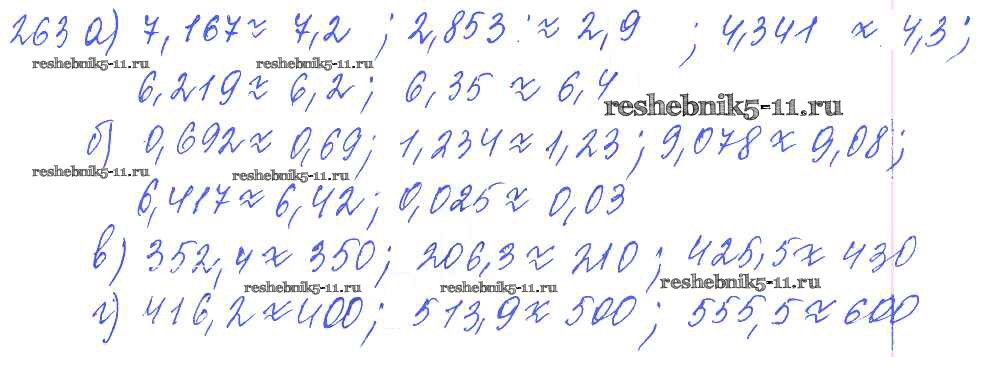 263 а) 7,167 ≈ 7,2 ; 2,853 ≈ 2,9 ; 4,341 ≈ 4,3;
reshebnik5-11.ru reshebnik5-11.ru
6,219 ≈ 6,2; 6,35 ≈ 6,4
reshebnik5-11.ru
б) 0,692 ≈ 0,69; 1,234 ≈ 1,23; 9,078 ≈ 9,08;
reshebnik5-11.ru reshebnik5-11.ru
6,417 ≈ 6,42; 0,025 ≈ 0,03
в) 352,4 ≈ 350; 206,3 ≈ 210; 425,5 ≈ 430
reshebnik5-11.ru reshebnik5-11.ru reshebnik5-11.ru
г) 416,2 ≈ 400; 513,9 ≈ 500; 555,5 ≈ 600